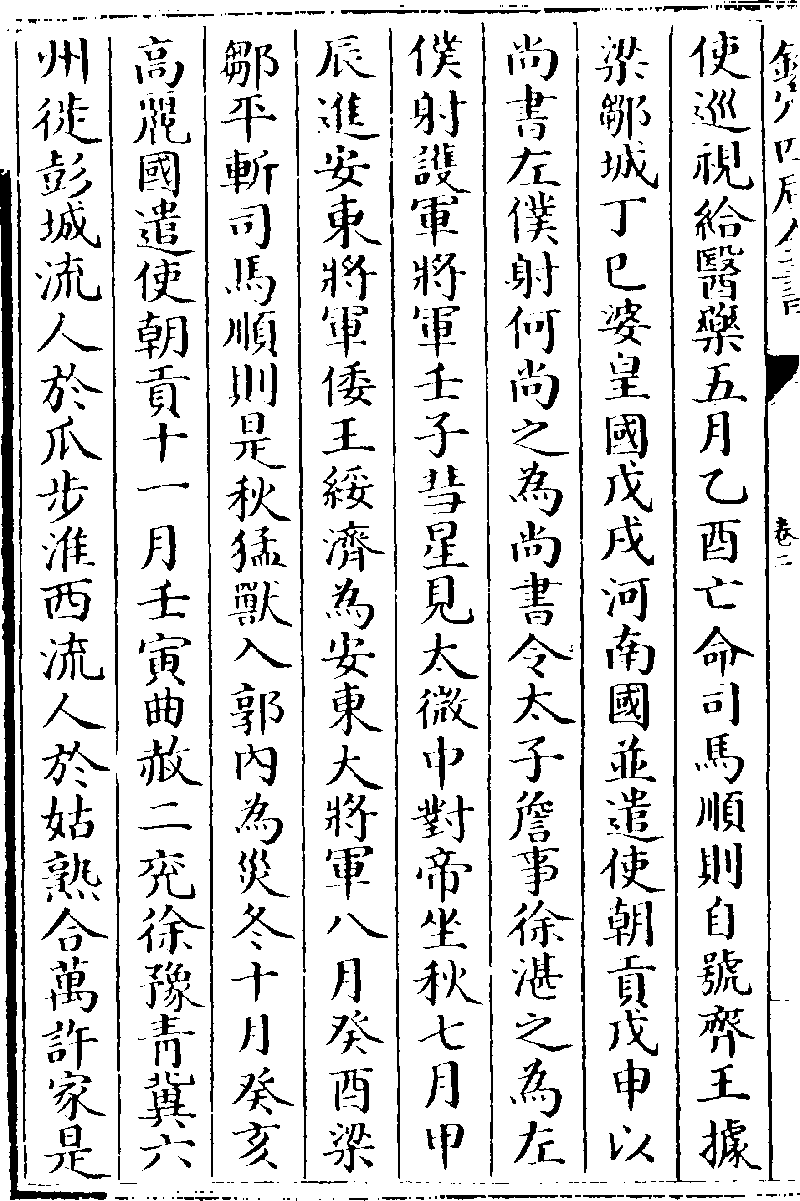 欽定四庫全書
卷二
使巡視給醫藥五月乙酉亡命司馬順則自號齊王據
梁鄒城丁巳婆皇國戊戌河南國並遣使朝貢戊申以
尚書左僕射何尚之為尚書令太子詹事徐湛之為左
僕射護軍將軍壬子彗星見太微中對帝坐秋七月甲
辰進安東將軍倭王綏濟為安東大將軍八月癸酉梁
鄒平斬司馬順則是秋猛獸入郭內為災冬十月癸亥
高麗國遣使朝貢十一月壬寅曲赦二兖徐豫青冀六
州徙彭城流人於瓜步淮西流人於姑熟合萬許家是